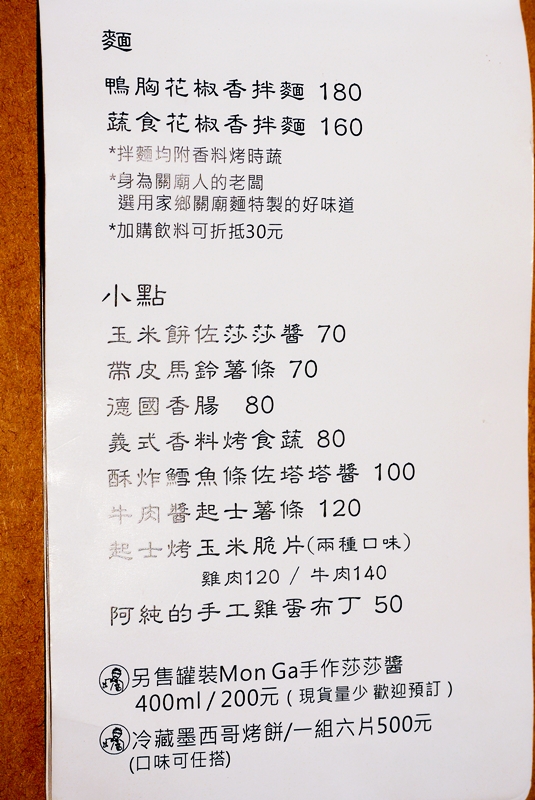 麵
鴨胸花椒香拌麵 180
蔬食花椒香拌麵 160
*拌麵均附香料烤時蔬
*身為關廟人的老闆
選用家鄉關廟麵特製的好味道
*加購飲料可折抵30元
小點
玉米餅佐莎莎醬 70
帶皮馬鈴薯條 70
德國香腸 80
義式香料烤食蔬 80
酥炸鱈魚條佐塔塔醬 100
牛肉醬起士薯條 120
起士烤玉米脆片(兩種口味)
雞肉120 / 牛肉140
阿純的手工雞蛋布丁 50
另售罐裝Mon Ga手作莎莎醬
400ml / 200元 ( 現貨量少 歡迎預訂 )
冷藏墨西哥烤餅/一組六片500元
(口味可任搭)